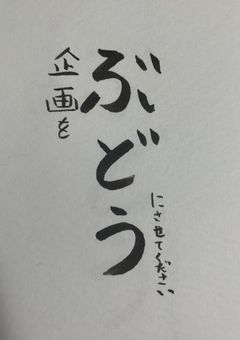 企画を
ぶどう
にさせてください